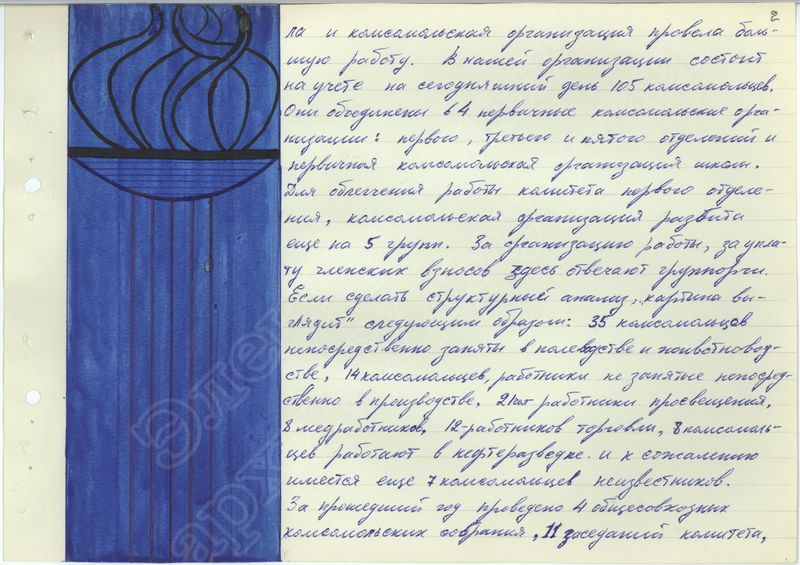 2
ла и комсомольская организация провела боль-
шую работу. В нашей организации состоит
на учете на сегодняшний день 105 комсомольцев.
Они объединены в 4 первичные комсомольские орга-
низации: первого, третьего и пятого отделений и
первичная комсомольская организация школы.
Для облегчения работы комитета первого отделе-
ния, комсомольская организация разбита
еще на 5 групп. За организацию работы, за упла-
ту членских взносов здесь отвечают группорги.
Если сделать структурный анализ, "картина вы-
глядит" следующим образом: 35 комсомольцев
непосредственно заняты в полеводстве и животновод-
стве, 14 комсомольцев, работники не занятые непосред-
ственно в производстве, 21 работники просвещения,
8 медработников, 12-работников торговли, 8 комсомоль-
цев работают в нефтеразведке. и к сожалению
имеется еще 7 комсомольцев неизвестников.
За прошедший год проведено 4 общесовхозных
комсомольских собрания, 11 заседаний комитета,
Элек
арх